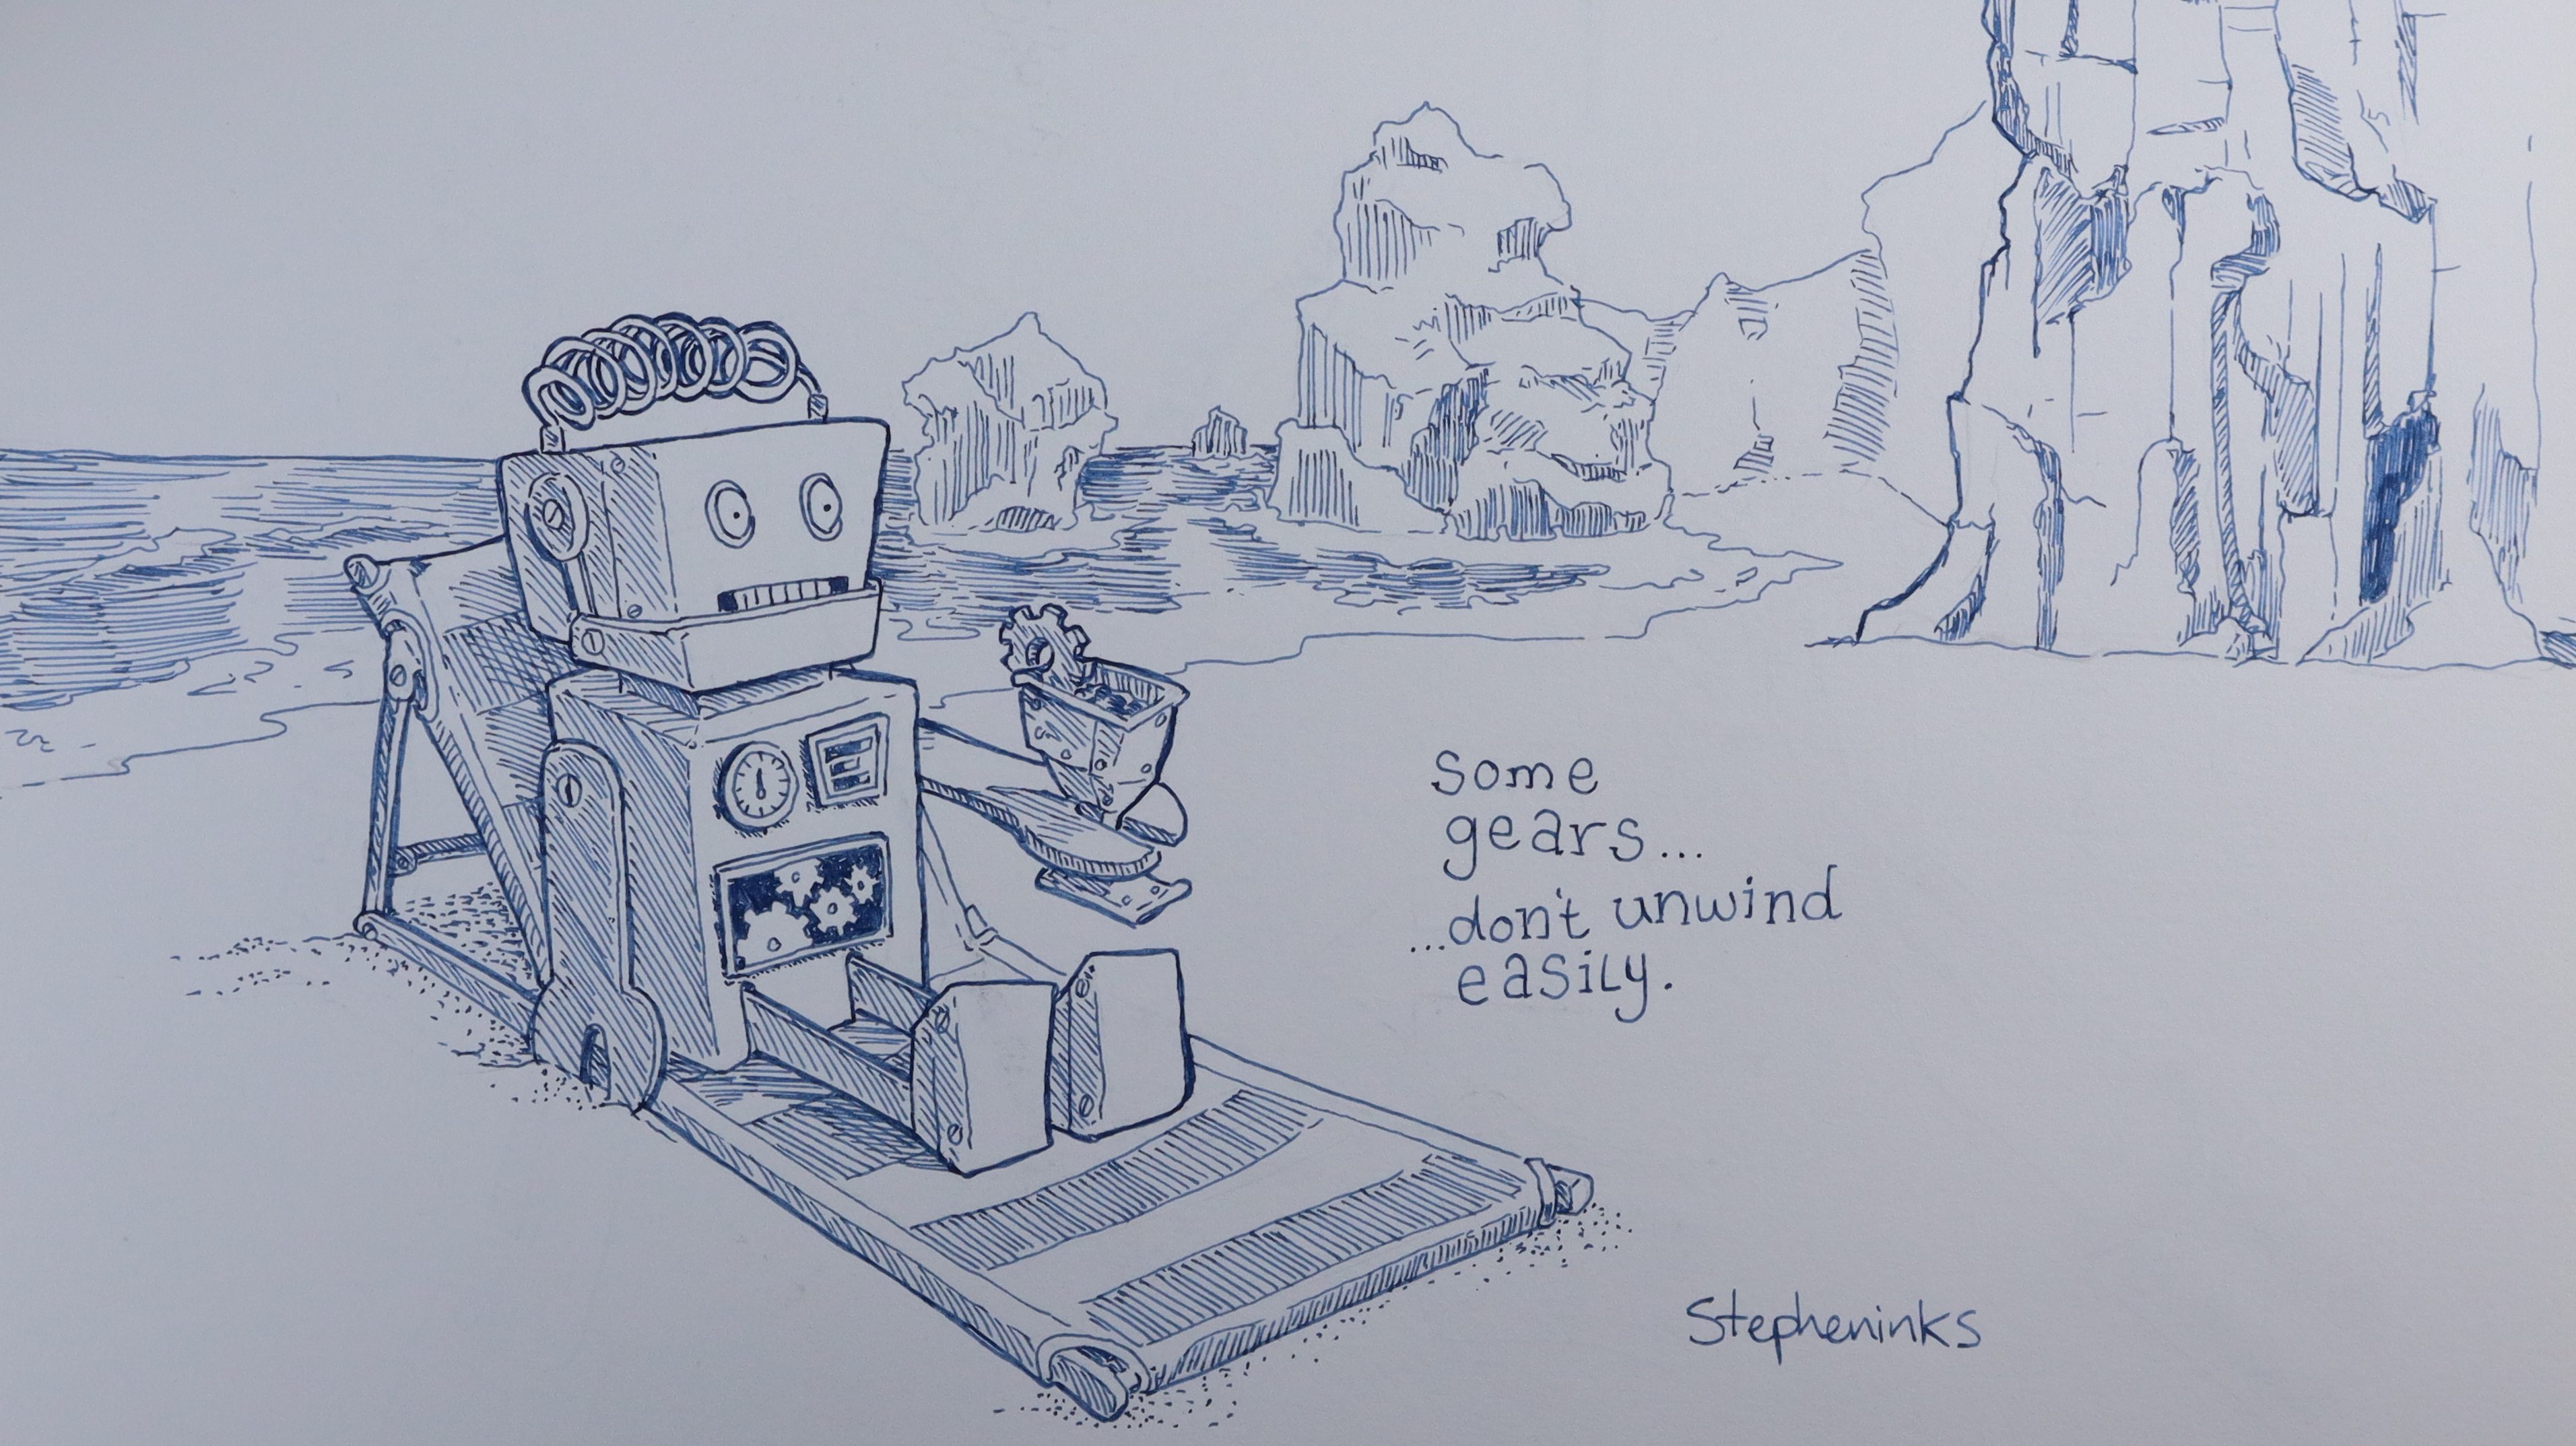 some
gears...
...don't unwind
easily.
Stepheninks